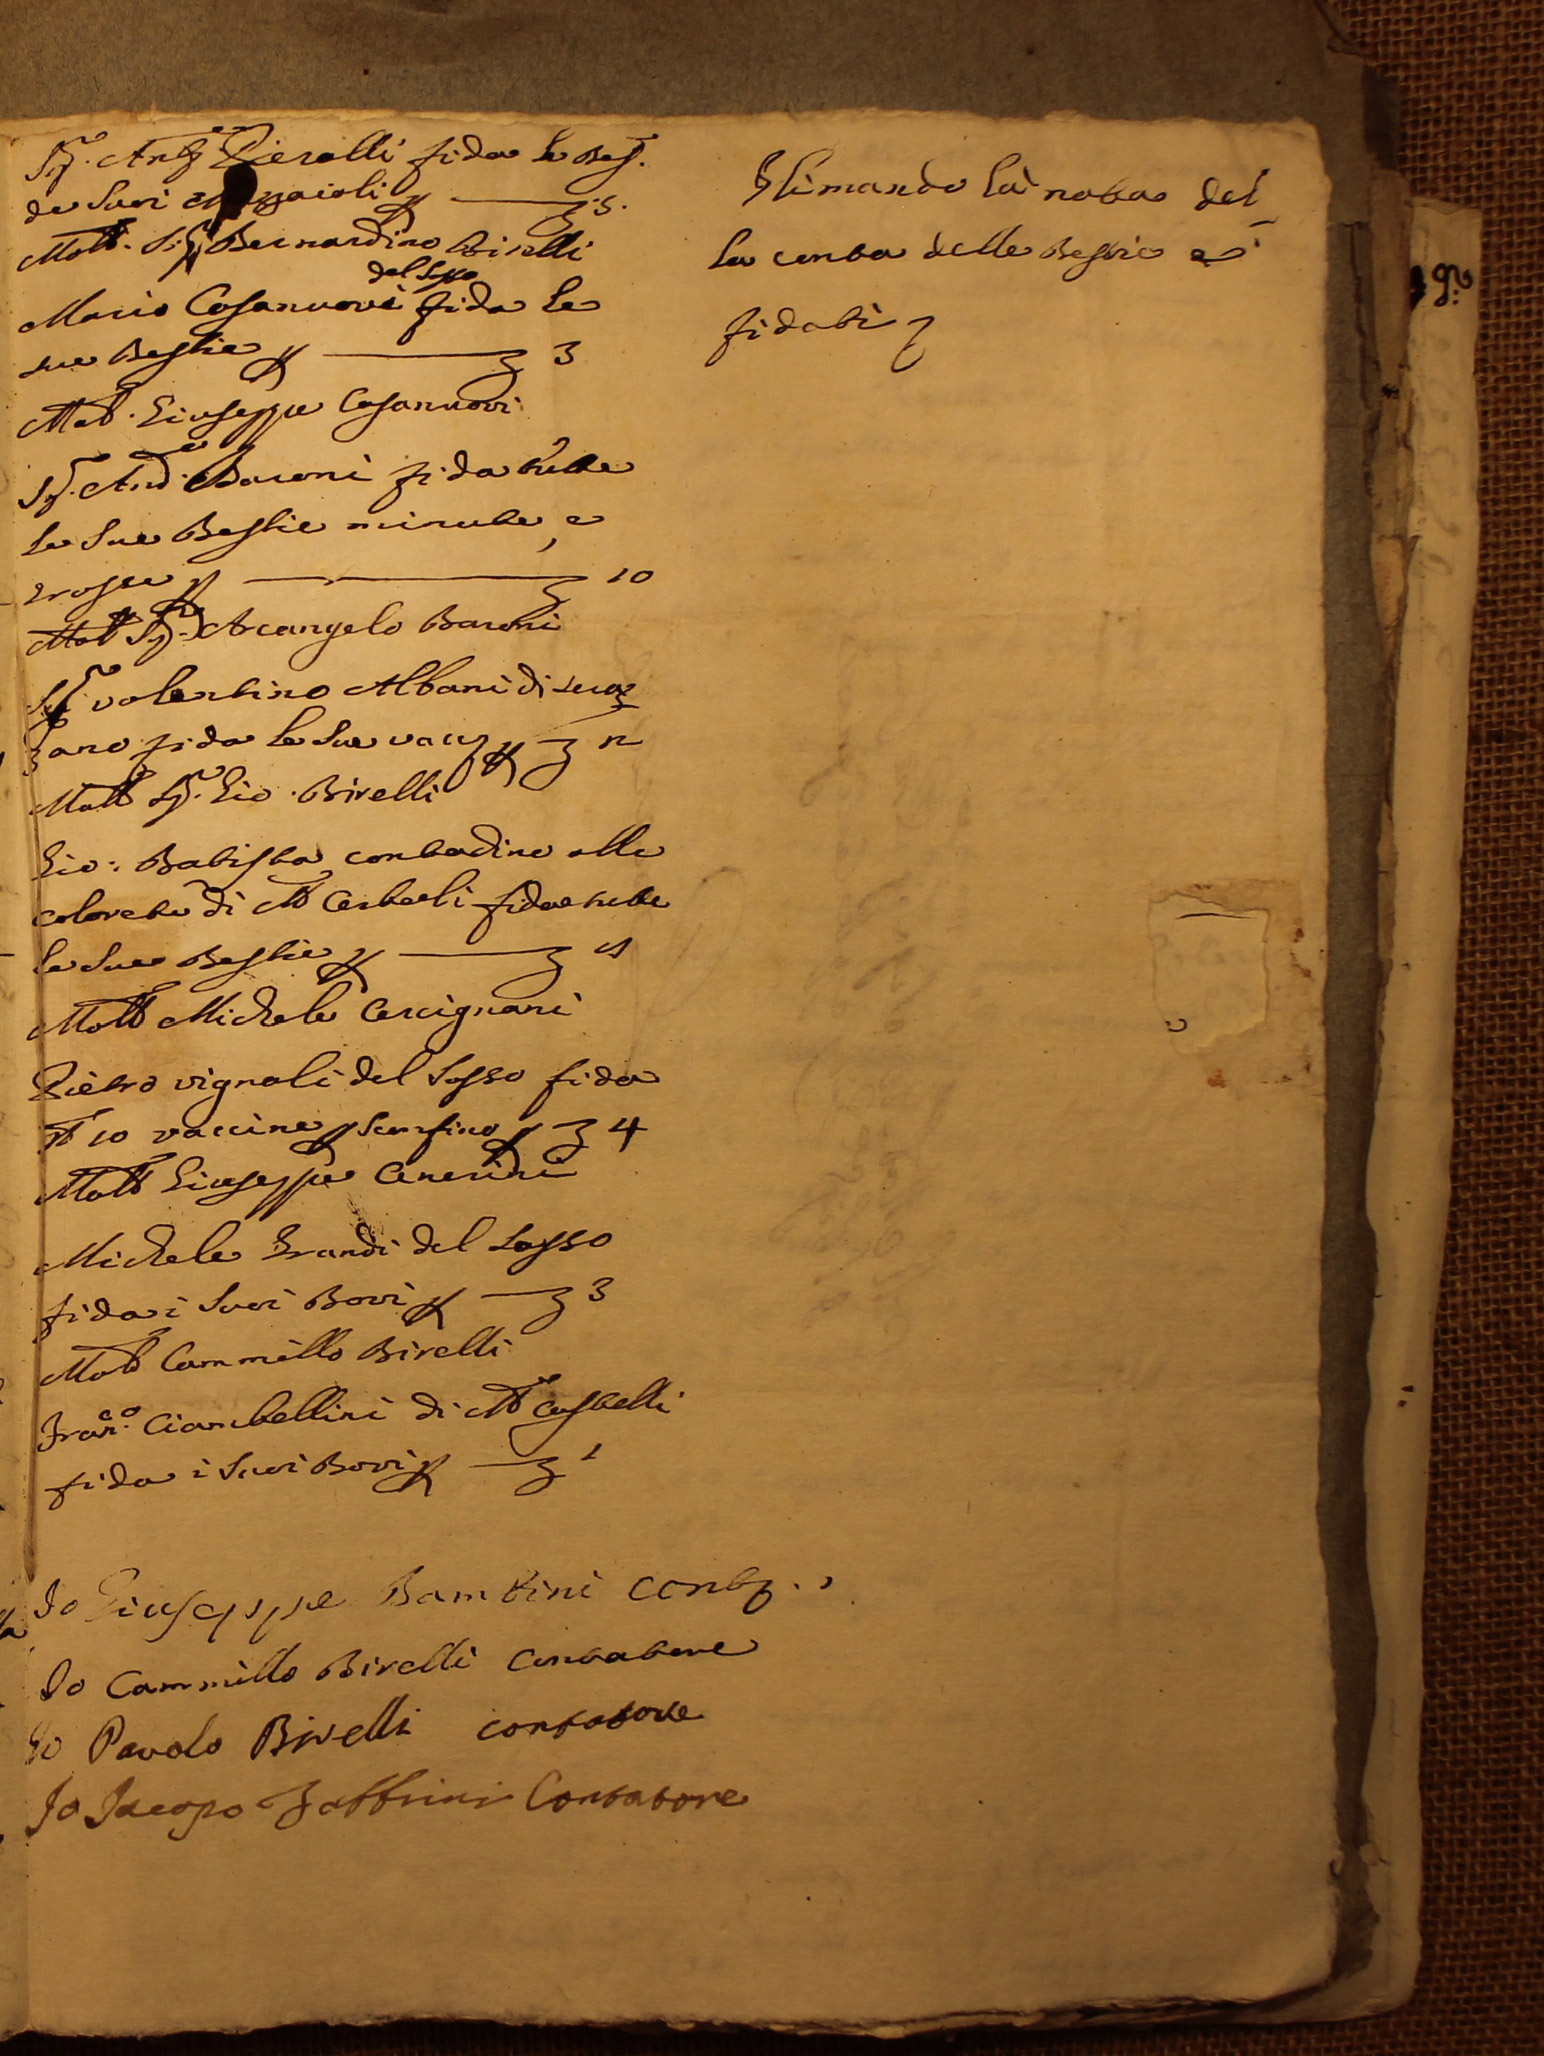 Sig.r Ant.o Pieralli fida le Best.
de suoi Mezzaioli p — 5.
Matt. Sig.r Bernardino Birelli
del Sasso
Mario Casanuovi fida le
sue Bestie p — 3
Matt. Giuseppe Casanuovi
Sig.r And.a Baroni fida tutte
le sue Bestie minute, e
grosse p — 10
Matt Sig.r Arcangelo Baroni
Sig.r valentino Albani di
zano fida le sue vacc p — 12
Matt Sig.r Gio. Birelli
Gio: Batista contadino alle
di M Cerboli fida tutte
le sue Bestie p —
Matt Michele Cercignani
Pietro vignali del Sasso fida
10 vaccine p p — 4
Matt Giuseppe Cenerini
Michele Grandi del Sasso
fida i suoi Bovi p — 3
Matt Cammillo Birelli
Fran.co Ciambellini di M Castelli
fida i suoi Bovi p — 1
Io Giuseppe Bambini cont.
Io Cammillo Birelli Contatore
Io Pavolo Birelli contatore
Io Jacopo Fabbrini Contatore
Li mando la nota del
la conta delle Bestie e
fidati